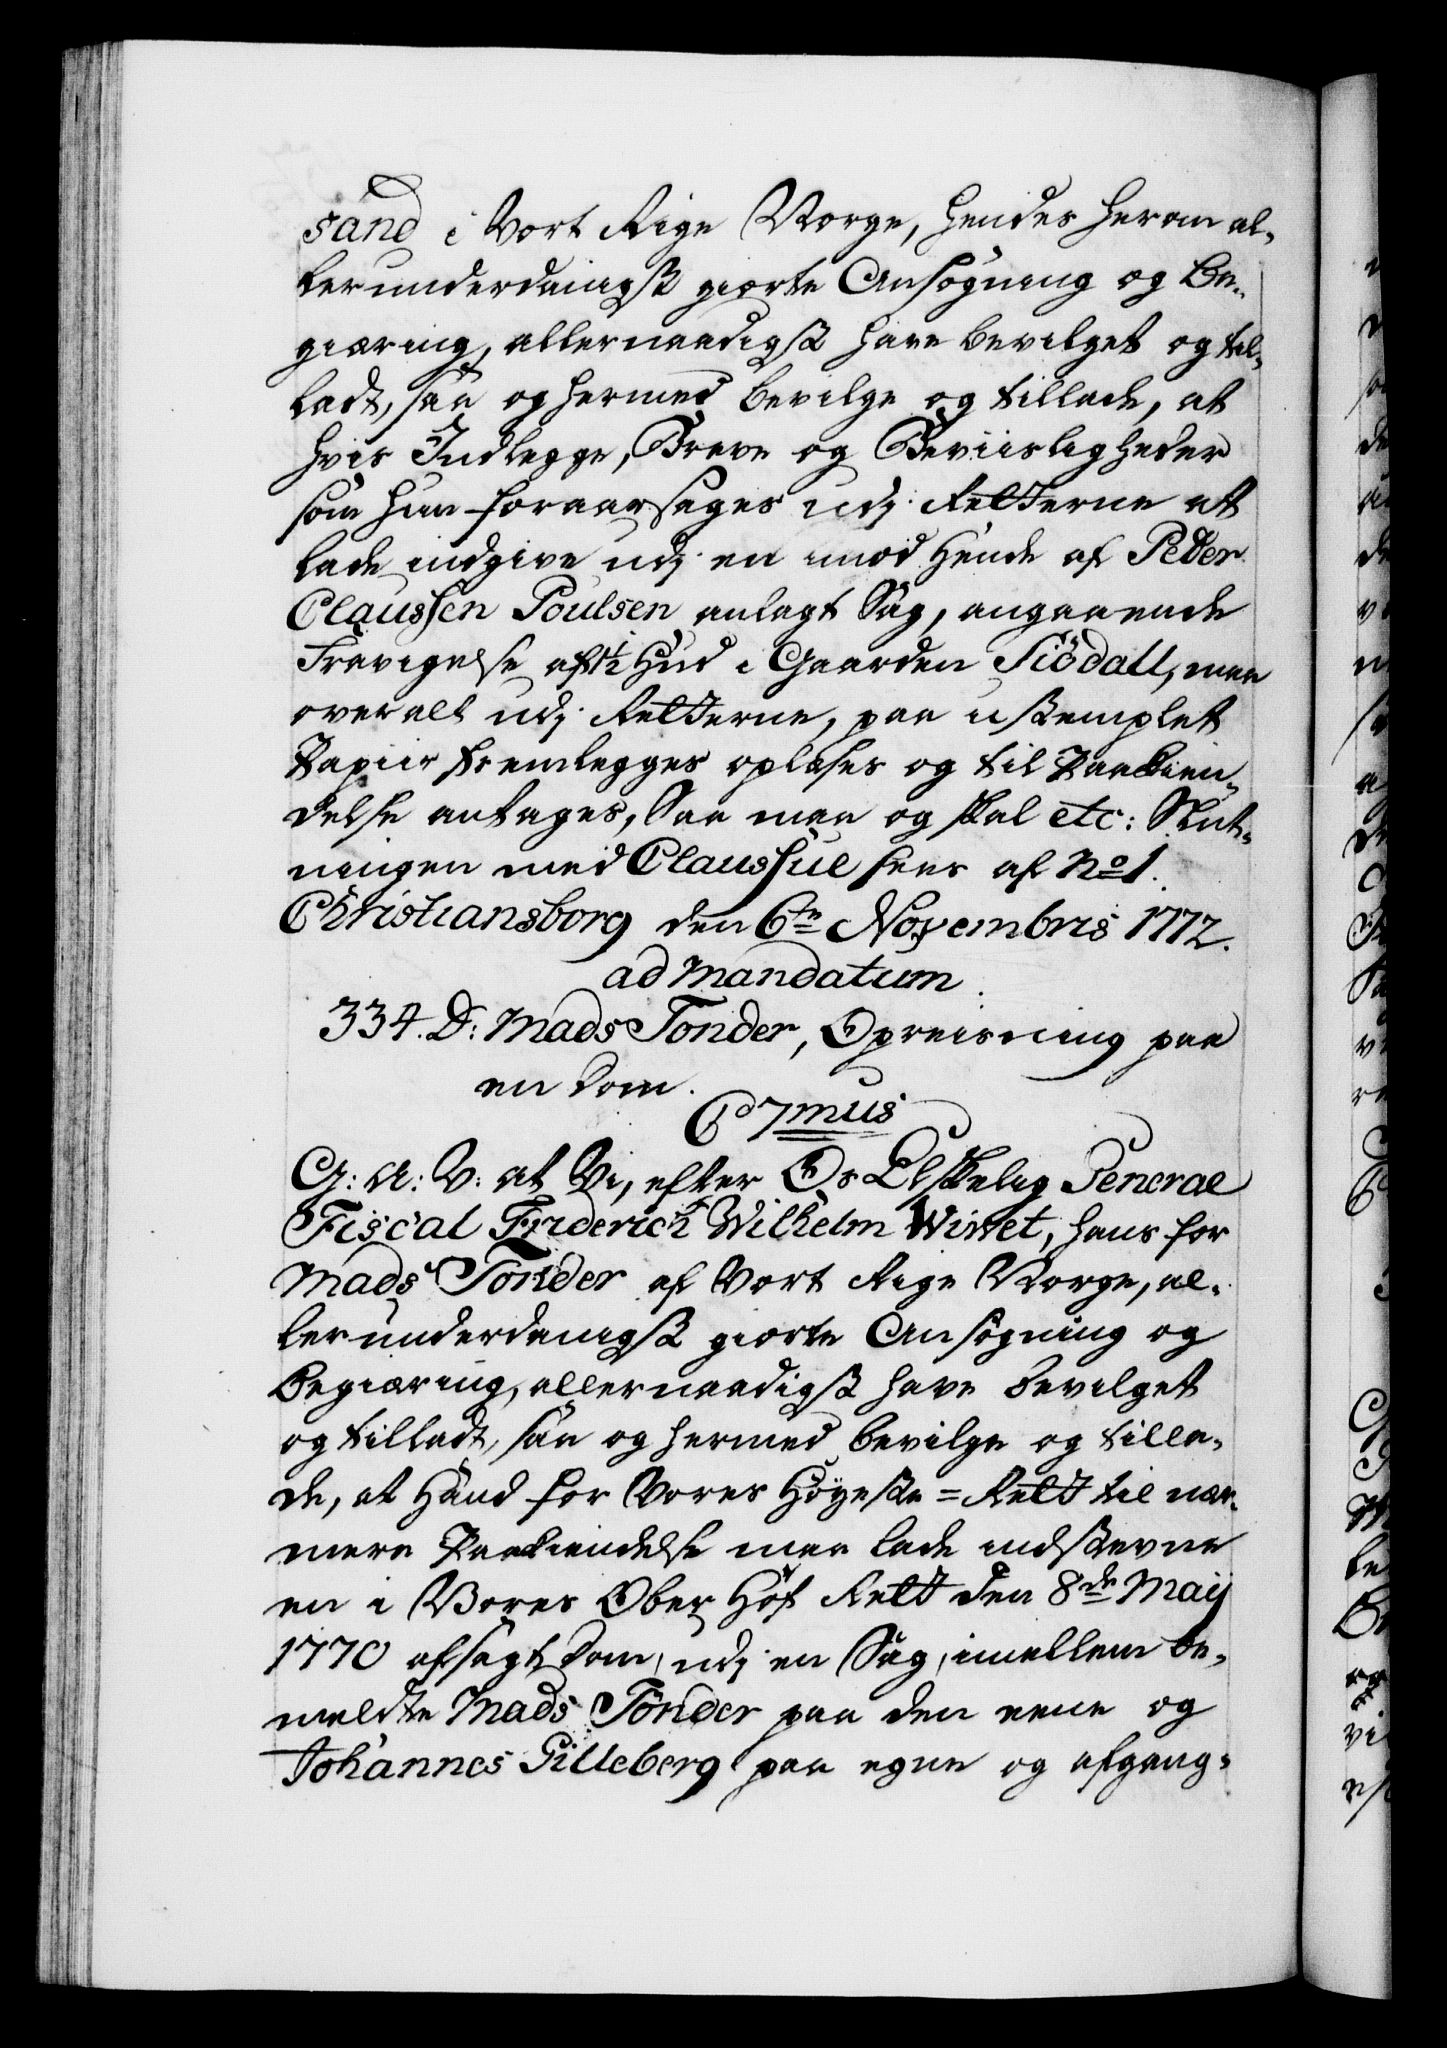 sand i Vort Rige Norge, hendes herom al-
lerunderdanigst giorte Ansøgning og Be-
giæring, allernaadigst have bevilget og til-
ladt, saa og hermed bevilge og tillade, at
hvis Indlegge, Breve og Beviisligheder
som hun foraarsages udj Retterne at
lade indgive udj en imod Hende af Peder
Claussen Poulsen anlagt Sag, angaaende
Fravigelse af 1½ Hud i Gaarden Siödall, maa
overalt udj Retterne, paa ustemplet
Papiir fremlegges oplæses og til Paakien-
delse antages, Saa maa og skal etc: Slut-
ningen med Claussul sees af No 1.
Christiansborg den 6te Novembris 1772.
ad mandatum.
334. D: Mads Tonder, Opreisning paa
en Dom.
Cd 7mus
G: A: V: at Vi, efter Os Elskelig General
Fiscal Friderich Wilhelm Wivet, hans for
Mads Tonder af Vort Rige Norge, al-
lerunderdanigst giorte Ansøgning og
Begiæring, allernaadigst have bevilget
og tilladt, saa og hermed bevilge og tilla-
de, at Hand for Vores Høyeste=Rett til nær-
mere Paakiendelse maa lade indstevne
en i Vores Ober Hof Rett den 8de Maij
1770 afsagt Dom, udj en Sag, imellem be-
meldte Mads Tonder paa den eene og
Johannes Gilleberg paa egne og afgang-